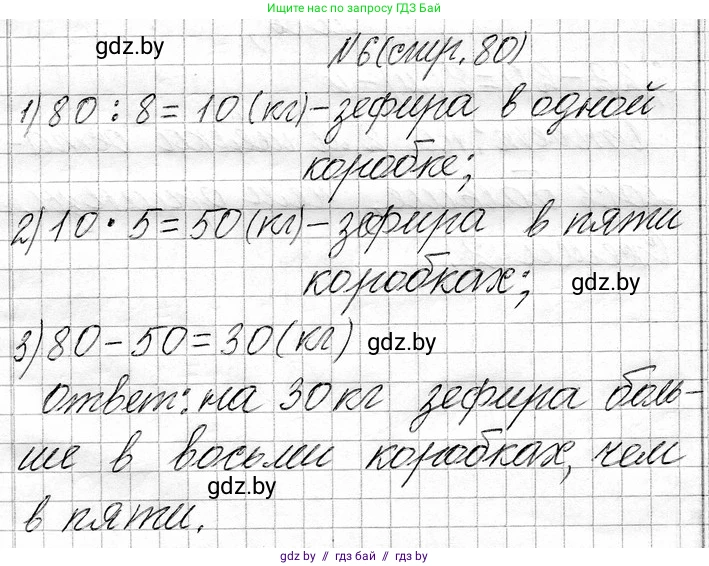 Ищите нас по запросу ГДЗ Бай
gdz.by
№6(стр. 80)
1) 80 : 8 = 10 (кг) - зефира в одной
коробке;
2) 10 · 5 = 50 (кг) - зефира в пяти
коробках;
gdz.by
3) 80 - 50 = 30 (кг)
gdz.by
Ответ: на 30 кг зефира боль-
ше в восьми коробках, чем
gdz.by
в пяти.
gdz.by // гдз бай // гдз by